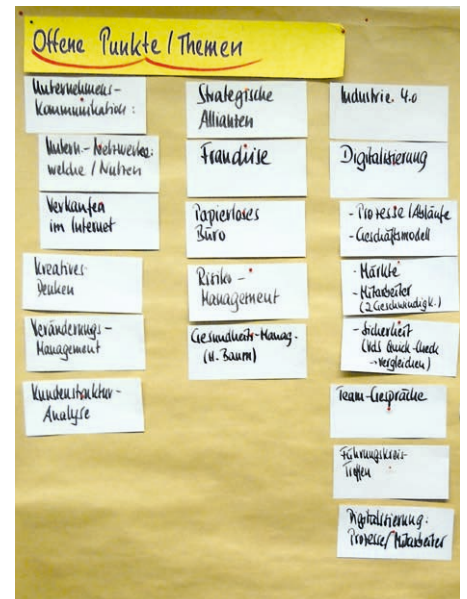 Offene Punkte / Themen
Unternehmens-
Kommunikation:
Untern.-Netzwerke:
welche / Nutzen
Verkaufen
im Internet
Kreatives
Denken
Veränderungs-
Management
Kundenstruktur-
Analyse
Strategische
Allianzen
Franchise
Papierloses
Büro
Risiko-
Management
Gesundheits-Manag.
(H. Baum)
Industrie 4.0
Digitalisierung
- Prozesse / Abläufe
- Geschäftsmodell
- Märkte
- Mitarbeiter
(2 Geschwindigk.)
- Sicherheit
(VdS Quick-Check
→ vergleichen)
Team-Gespräche
Führungskreis-
Treffen
Digitalisierung:
Prozesse/Mitarbeiter